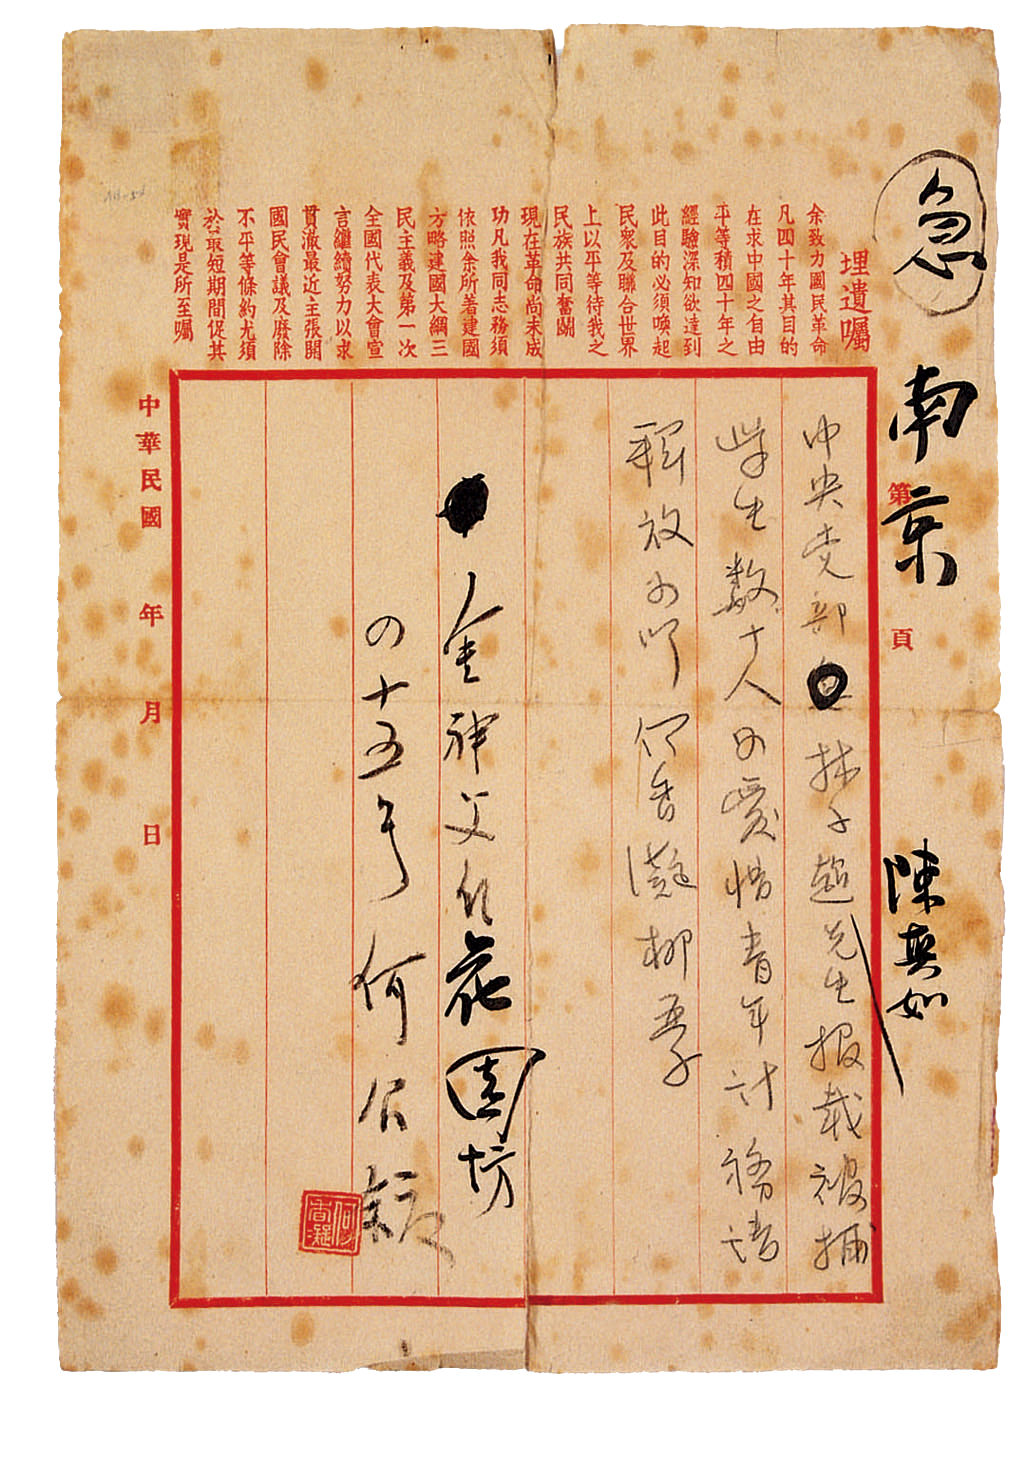 急 南京 陳真如
第 頁
埋遺囑
余致力國民革命
凡四十年其目的
在求中國之自由
平等積四十年之
經驗深知欲達到
此目的必須喚起
民眾及聯合世界
上以平等待我之
民族共同奮鬭
現在革命尚未成
功凡我同志務須
依照余所著建國
方略建國大綱三
民主義及第一次
全國代表大會宣
言繼續努力以求
貫澈最近主張開
國民會議及廢除
不平等條約尤須
於最短期間促其
實現是所至囑
中央党部 林子超先生报载被捕
学生数十人为爱惜青年计務请
釋放为盼 何香凝柳亞子
金神父路花園坊
の十五号 何公館
何香凝
中華民國 年 月 日